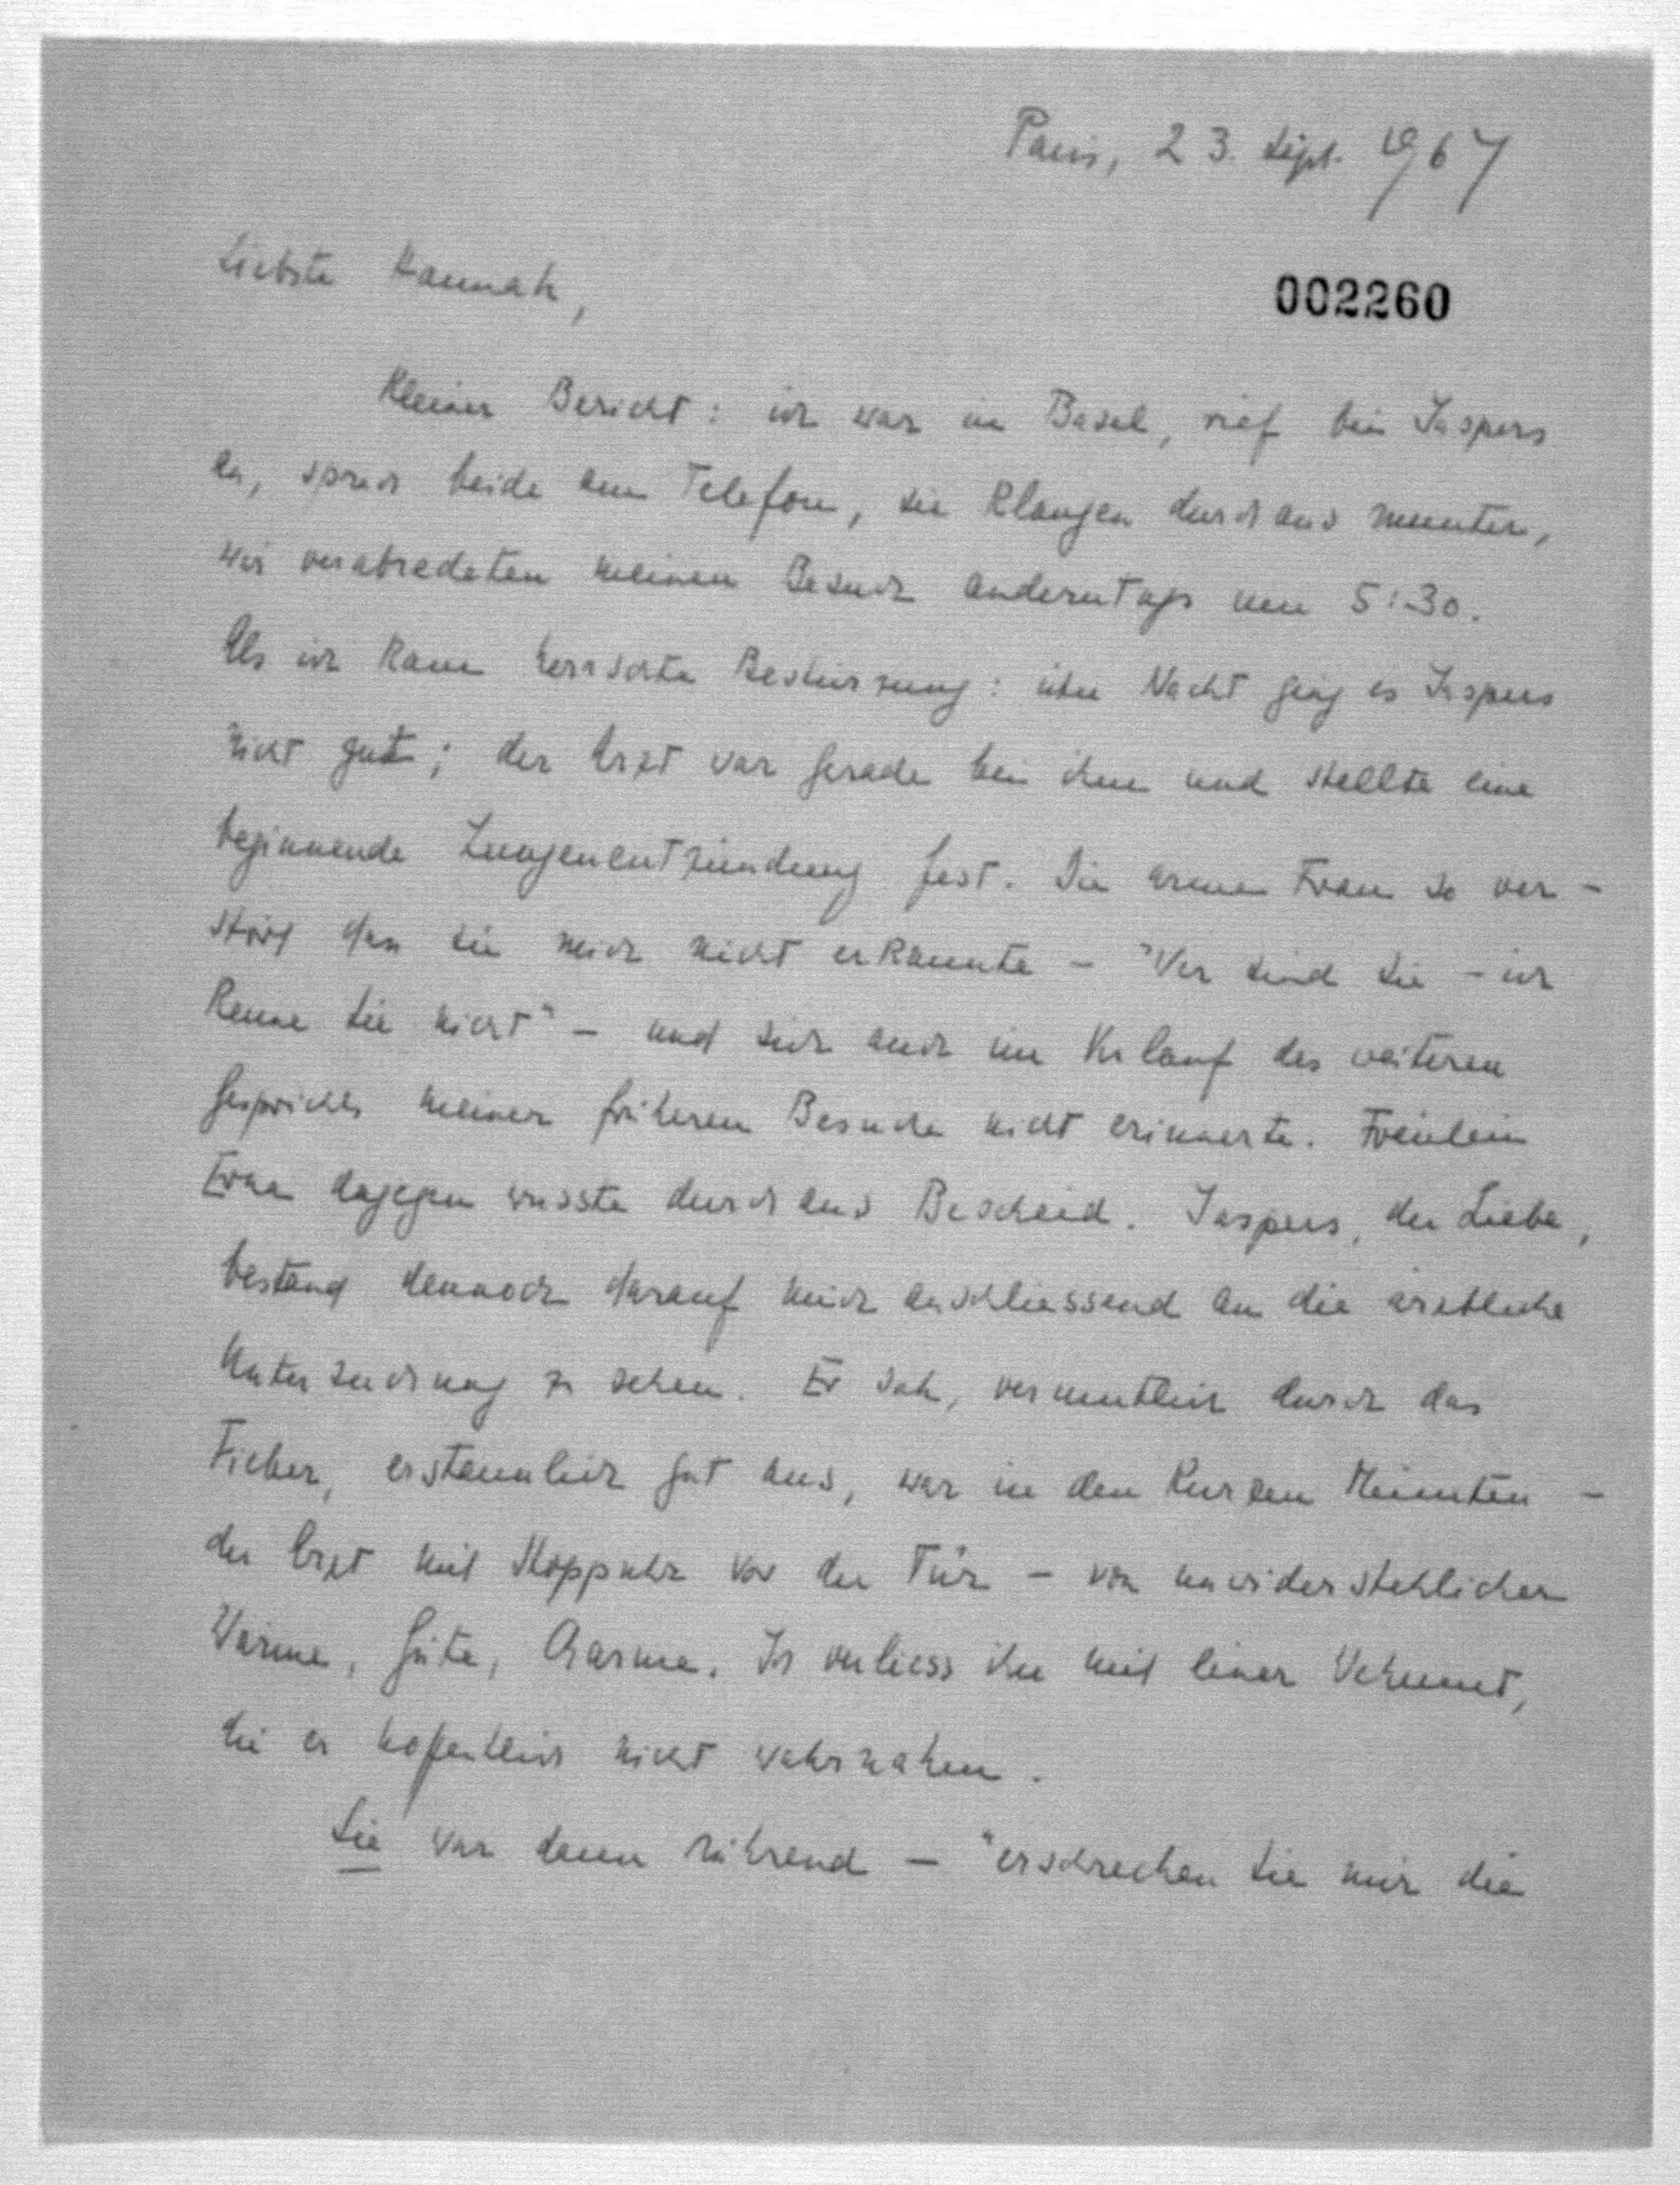 Paris, 23. Sept. 1967
Liebste Hannah,
002260
Kleiner Bericht: ich war in Basel, rief bei Jaspers
an, sprach beide am Telefon, sie klangen durchaus munter,
wir verabredeten meinen Besuch anderntags um 5:30.
Als ich kam herrschte Bestürzung: über Nacht ging es Jaspers
nicht gut; der Arzt war gerade bei ihm und stellte eine
beginnende Lungenentzündung fest. Die arme Frau so ver-
stört dass sie mich nicht erkannte - "Wer sind Sie - ich
kenne Sie nicht" - und sich auch im Verlauf des weiteren
Gesprächs meiner früheren Besuche nicht erinnerte. Fräulein
Erna dagegen wusste durchaus Bescheid. Jaspers, der Liebe,
bestand dennoch darauf mich anschliessend an die ärztliche
Untersuchung zu sehen. Er sah, vermutlich durch das
Fieber, erstaunlich gut aus, war in den kurzen Minuten -
der Arzt mit Stoppuhr vor der Tür - von unwiderstehlicher
Wärme, Güte, Charme. Ich verliess ihn mit einer Wehmut,
die er hoffentlich nicht wahrnahm.
Sie war dann rührend - "erschrecken Sie mir die